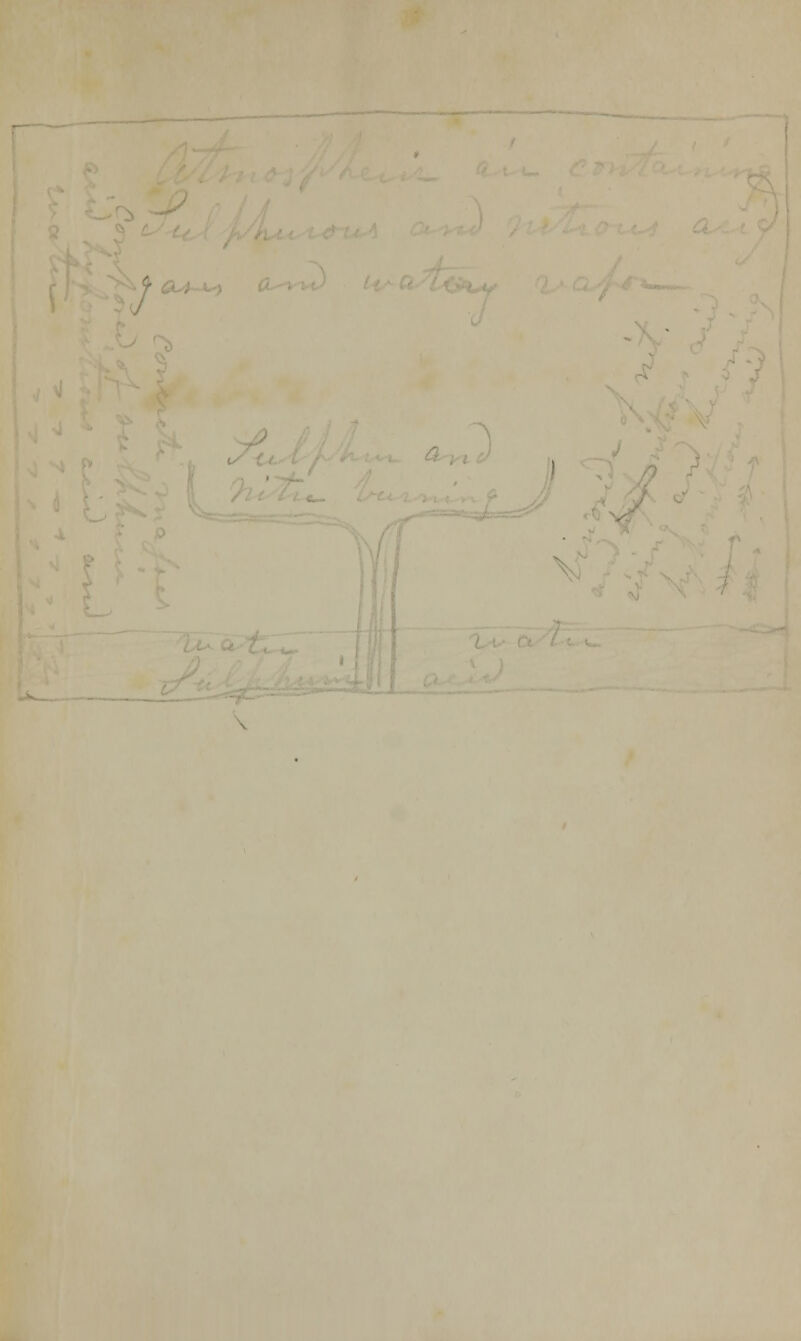 Atmospheric air containing
Sulphurous and nitrous acid
gases and watery vapor
Concrete masses
composed of sulphurous
acid hyponitrous acid and
water
Sulphur and
nitre burning
binoxide of nit.
and
rising and becoming
hyponitrous acid
water water
Sulphuric acid